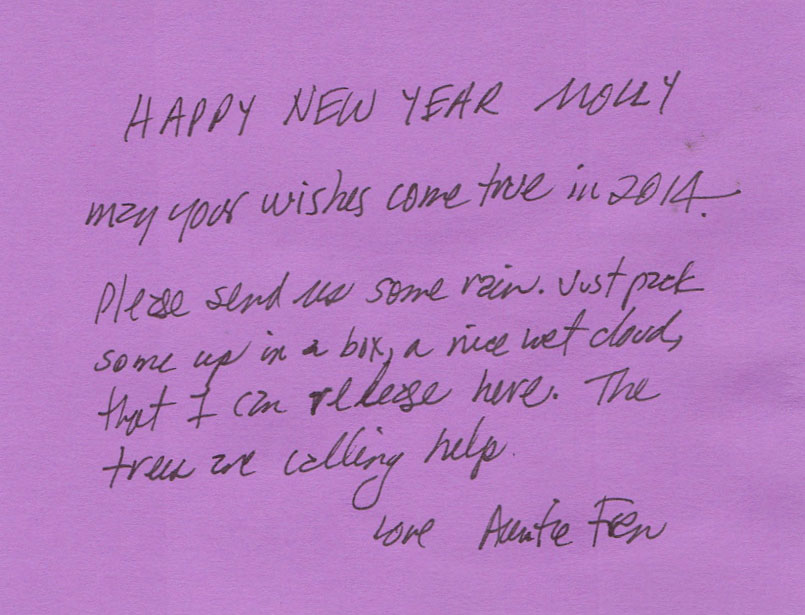 HAPPY NEW YEAR MOLLY
may your wishes come true in 2014.
Please send us some rain. Just pack
some up in a box, a nice wet cloud,
that I can release here. The
trees are calling help.
Love Auntie Fren